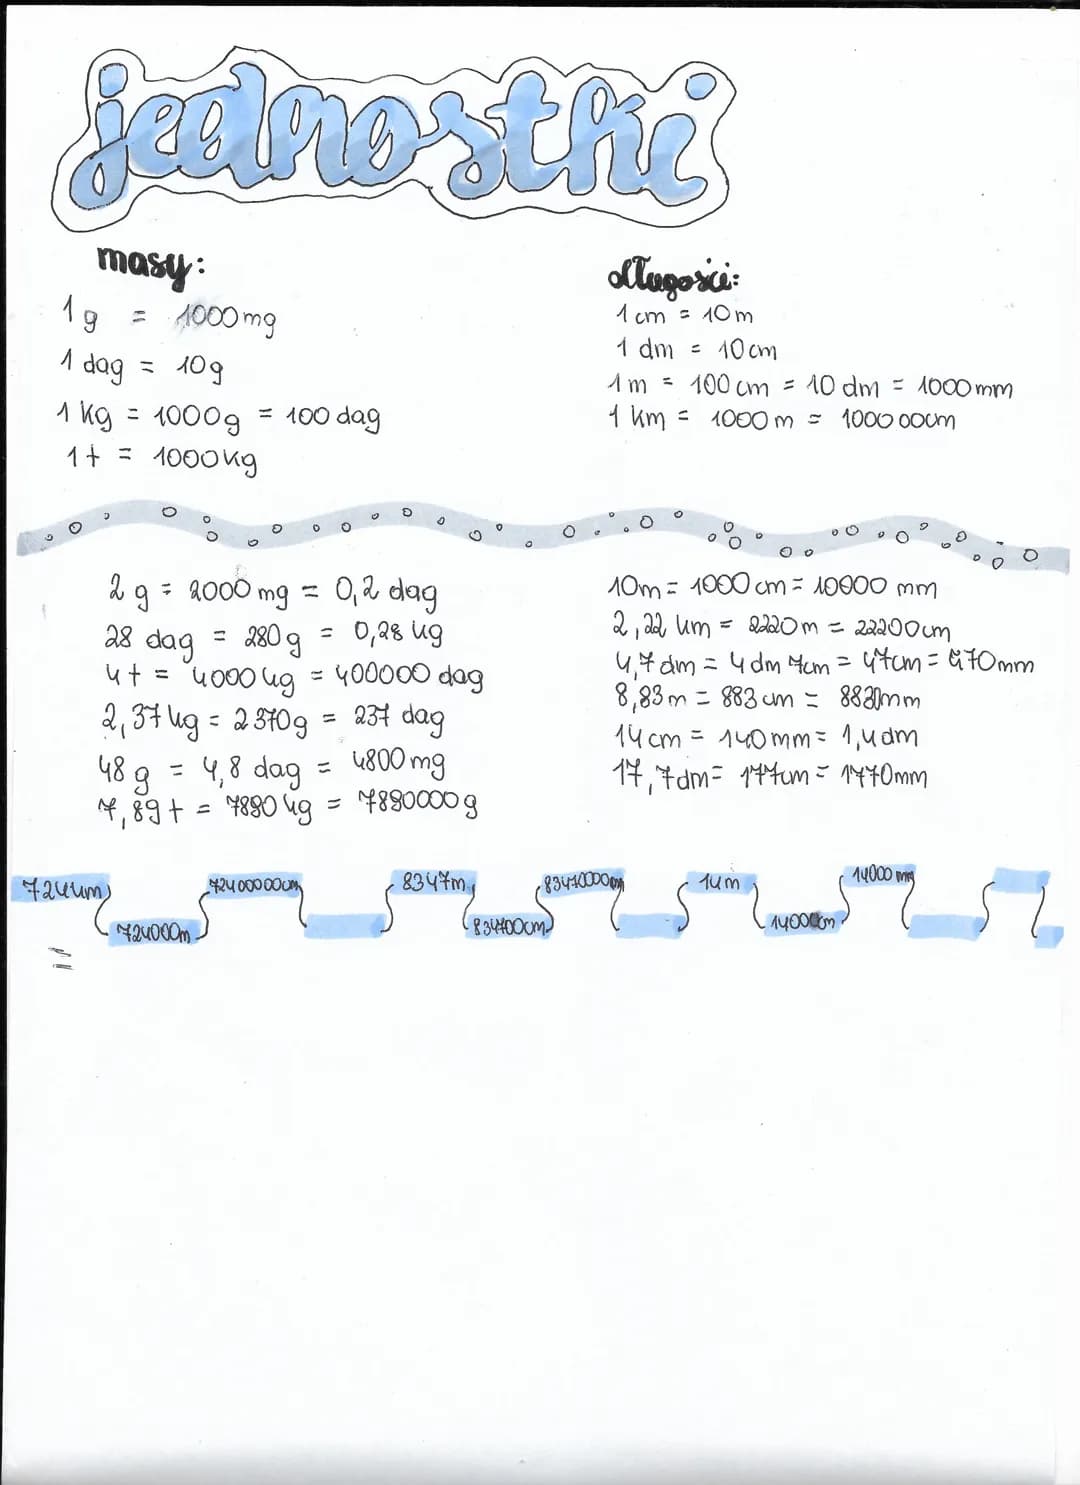 jednostki
masy:
1 g = 1000 mg
1 dag = 10 g
1 kg = 1000 g = 100 dag
1 t = 1000 kg
długości:
1 cm = 10 m
1 dm = 10 cm
1 m = 100 cm = 10 dm = 1000 mm
1 km = 1000 m = 100000 cm
2 g = 2000 mg = 0,2 dag
28 dag = 280 g = 0,28 kg
4 t = 4000 kg = 400000 dag
2,37 kg = 2370 g = 237 dag
48 g = 4,8 dag = 4800 mg
7,89 t = 7880 kg = 7880000 g
10 m = 1000 cm = 10000 mm
2,22 km = 2220 m = 22200 cm
4,7 dm = 4 dm 7 cm = 47 cm = 470 mm
8,83 m = 883 cm = 8830 mm
14 cm = 140 mm = 1,4 dm
17,7 dm = 177 cm = 1770 mm
724 km 724000 m 72400000 cm 8347 m 834700 cm 8347000 mm 14 m 1400 cm 14000 mm